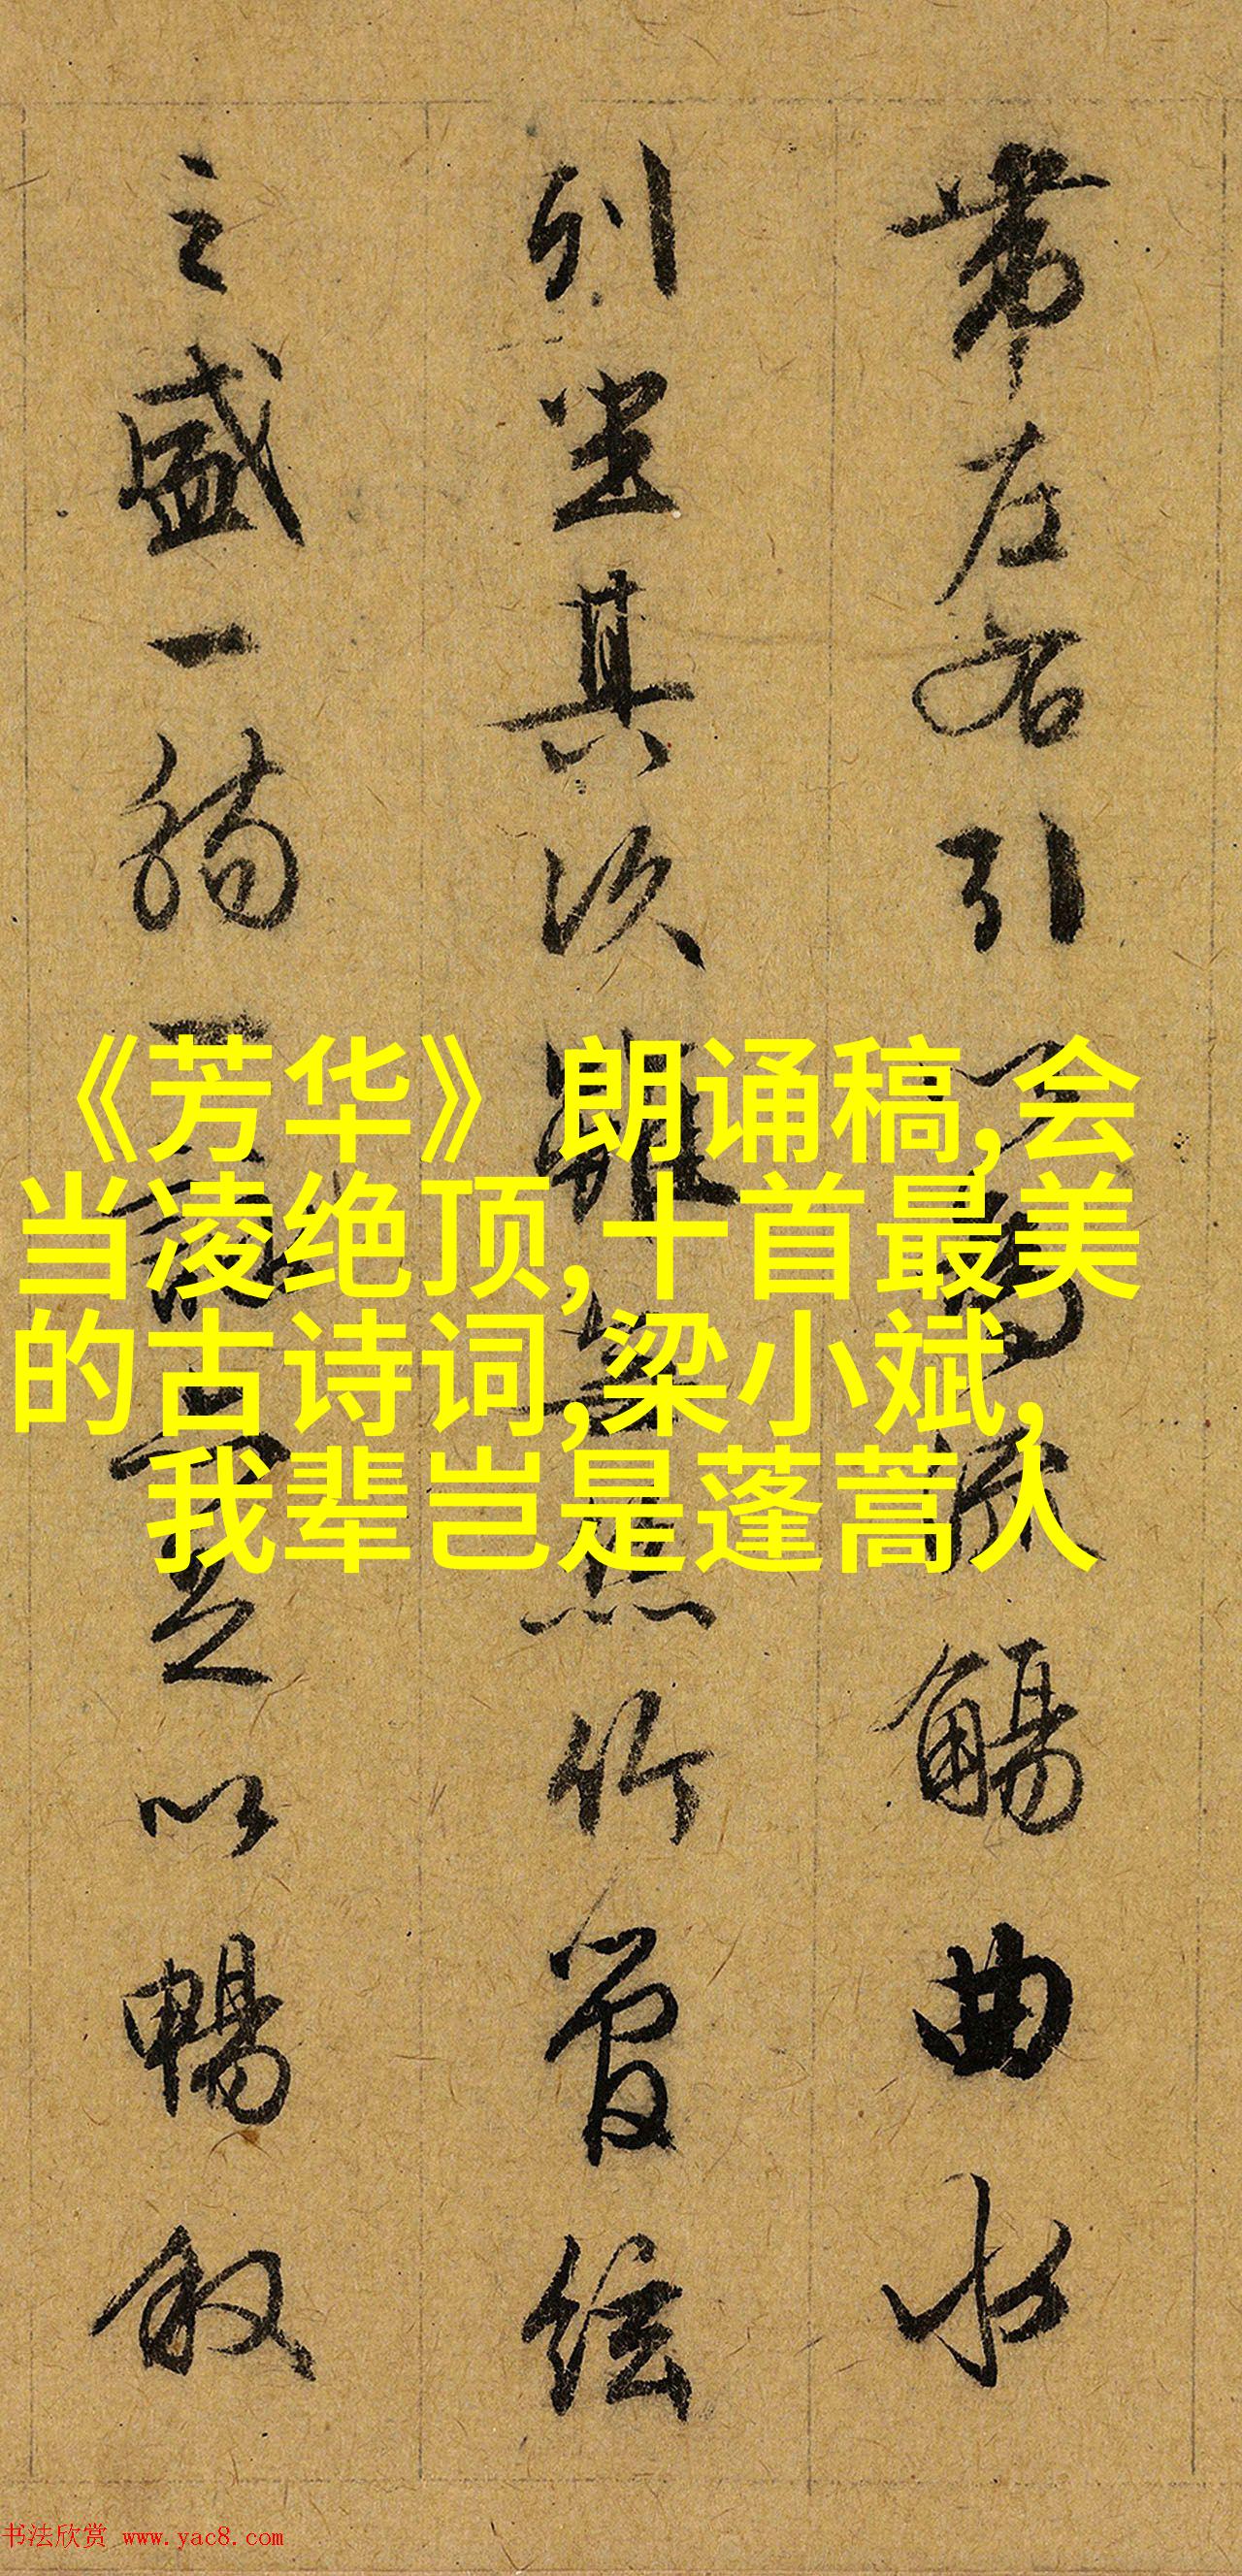 帶左右引以為流觴曲水
列坐其次雖無絲竹管絃
之盛一觴一詠亦足以暢敘
《芳华》朗诵稿,会
当凌绝顶,十首最美
的古诗词,梁小斌,
我辈岂是蓬蒿人
书法欣赏 www.yac8.com